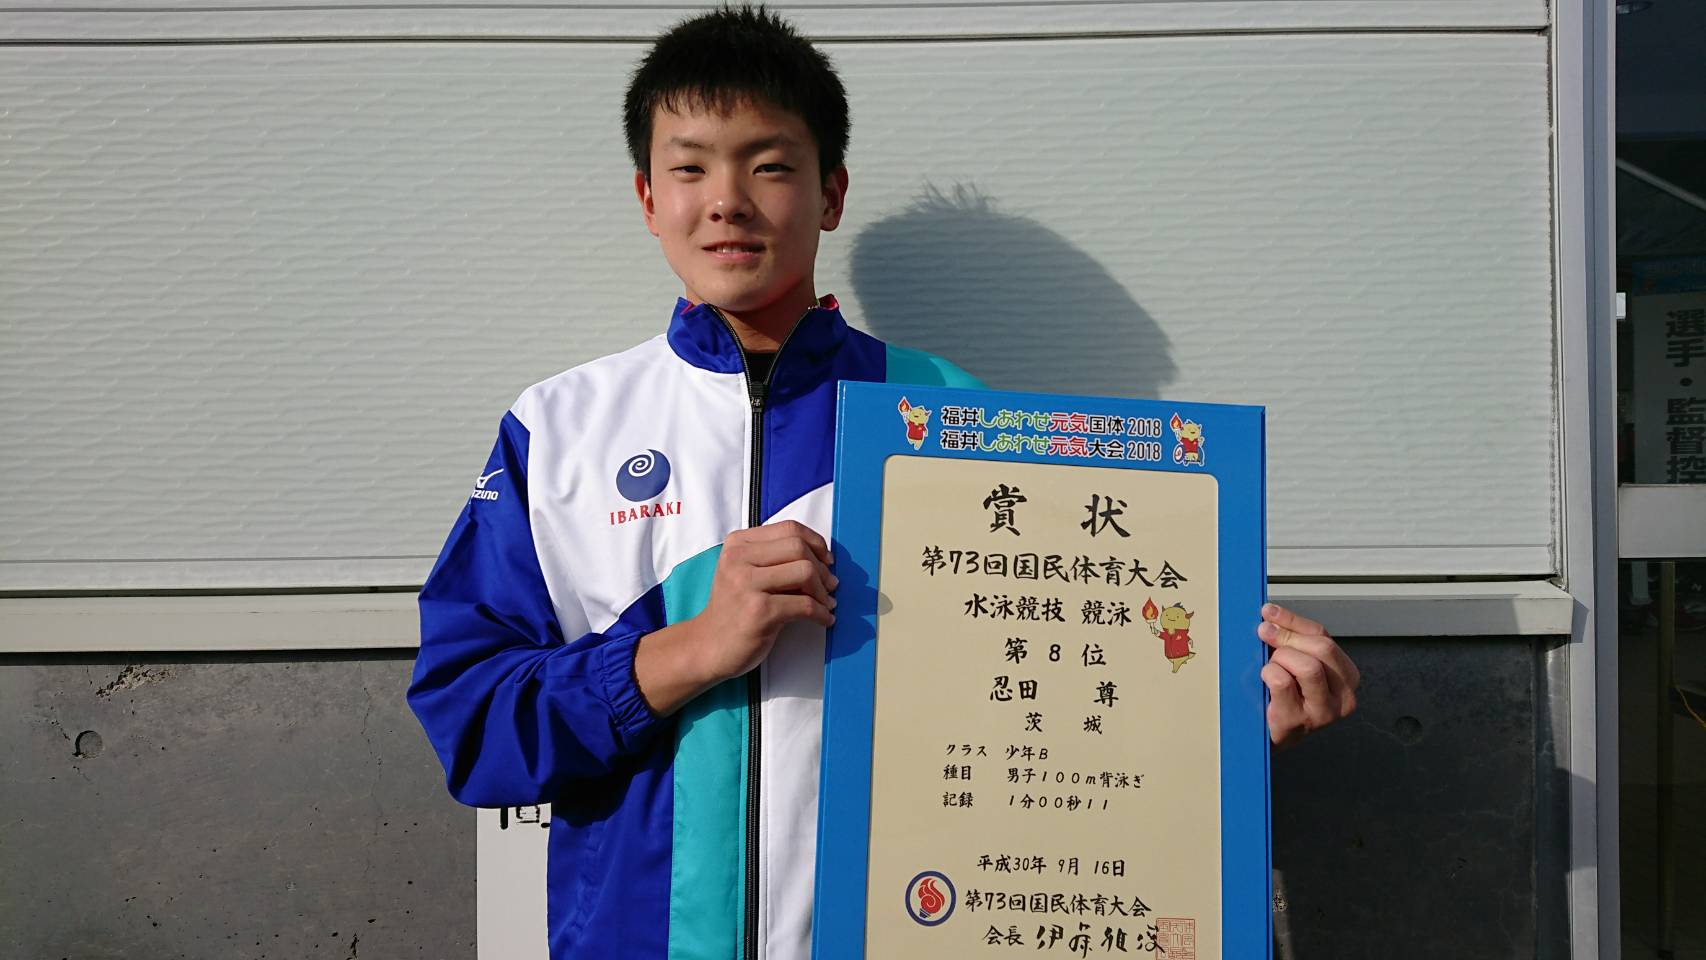 福井しあわせ元気国体2018
福井しあわせ元気大会2018
賞状
第73回国民体育大会
水泳競技 競泳
第 8 位
忍田 尊
茨城
クラス 少年B
種目 男子100m背泳ぎ
記録 1分00秒11
平成30年 9月 16日
第73回国民体育大会
会長
IBARAKI
選手・監督控